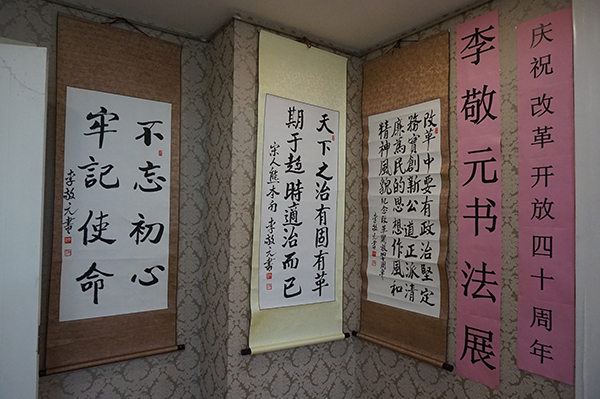 庆祝改革开放四十周年
李敬元书法展
改革中要有政治堅定
務實創新公道正派清
廉為民的思想作風和
精神風貌 纪念改革開放四十周年 李敬元書
天下之治有固有革
期于趋時適治而已
宋人熊 李敬元書
不忘初心
牢記使命
李敬元書